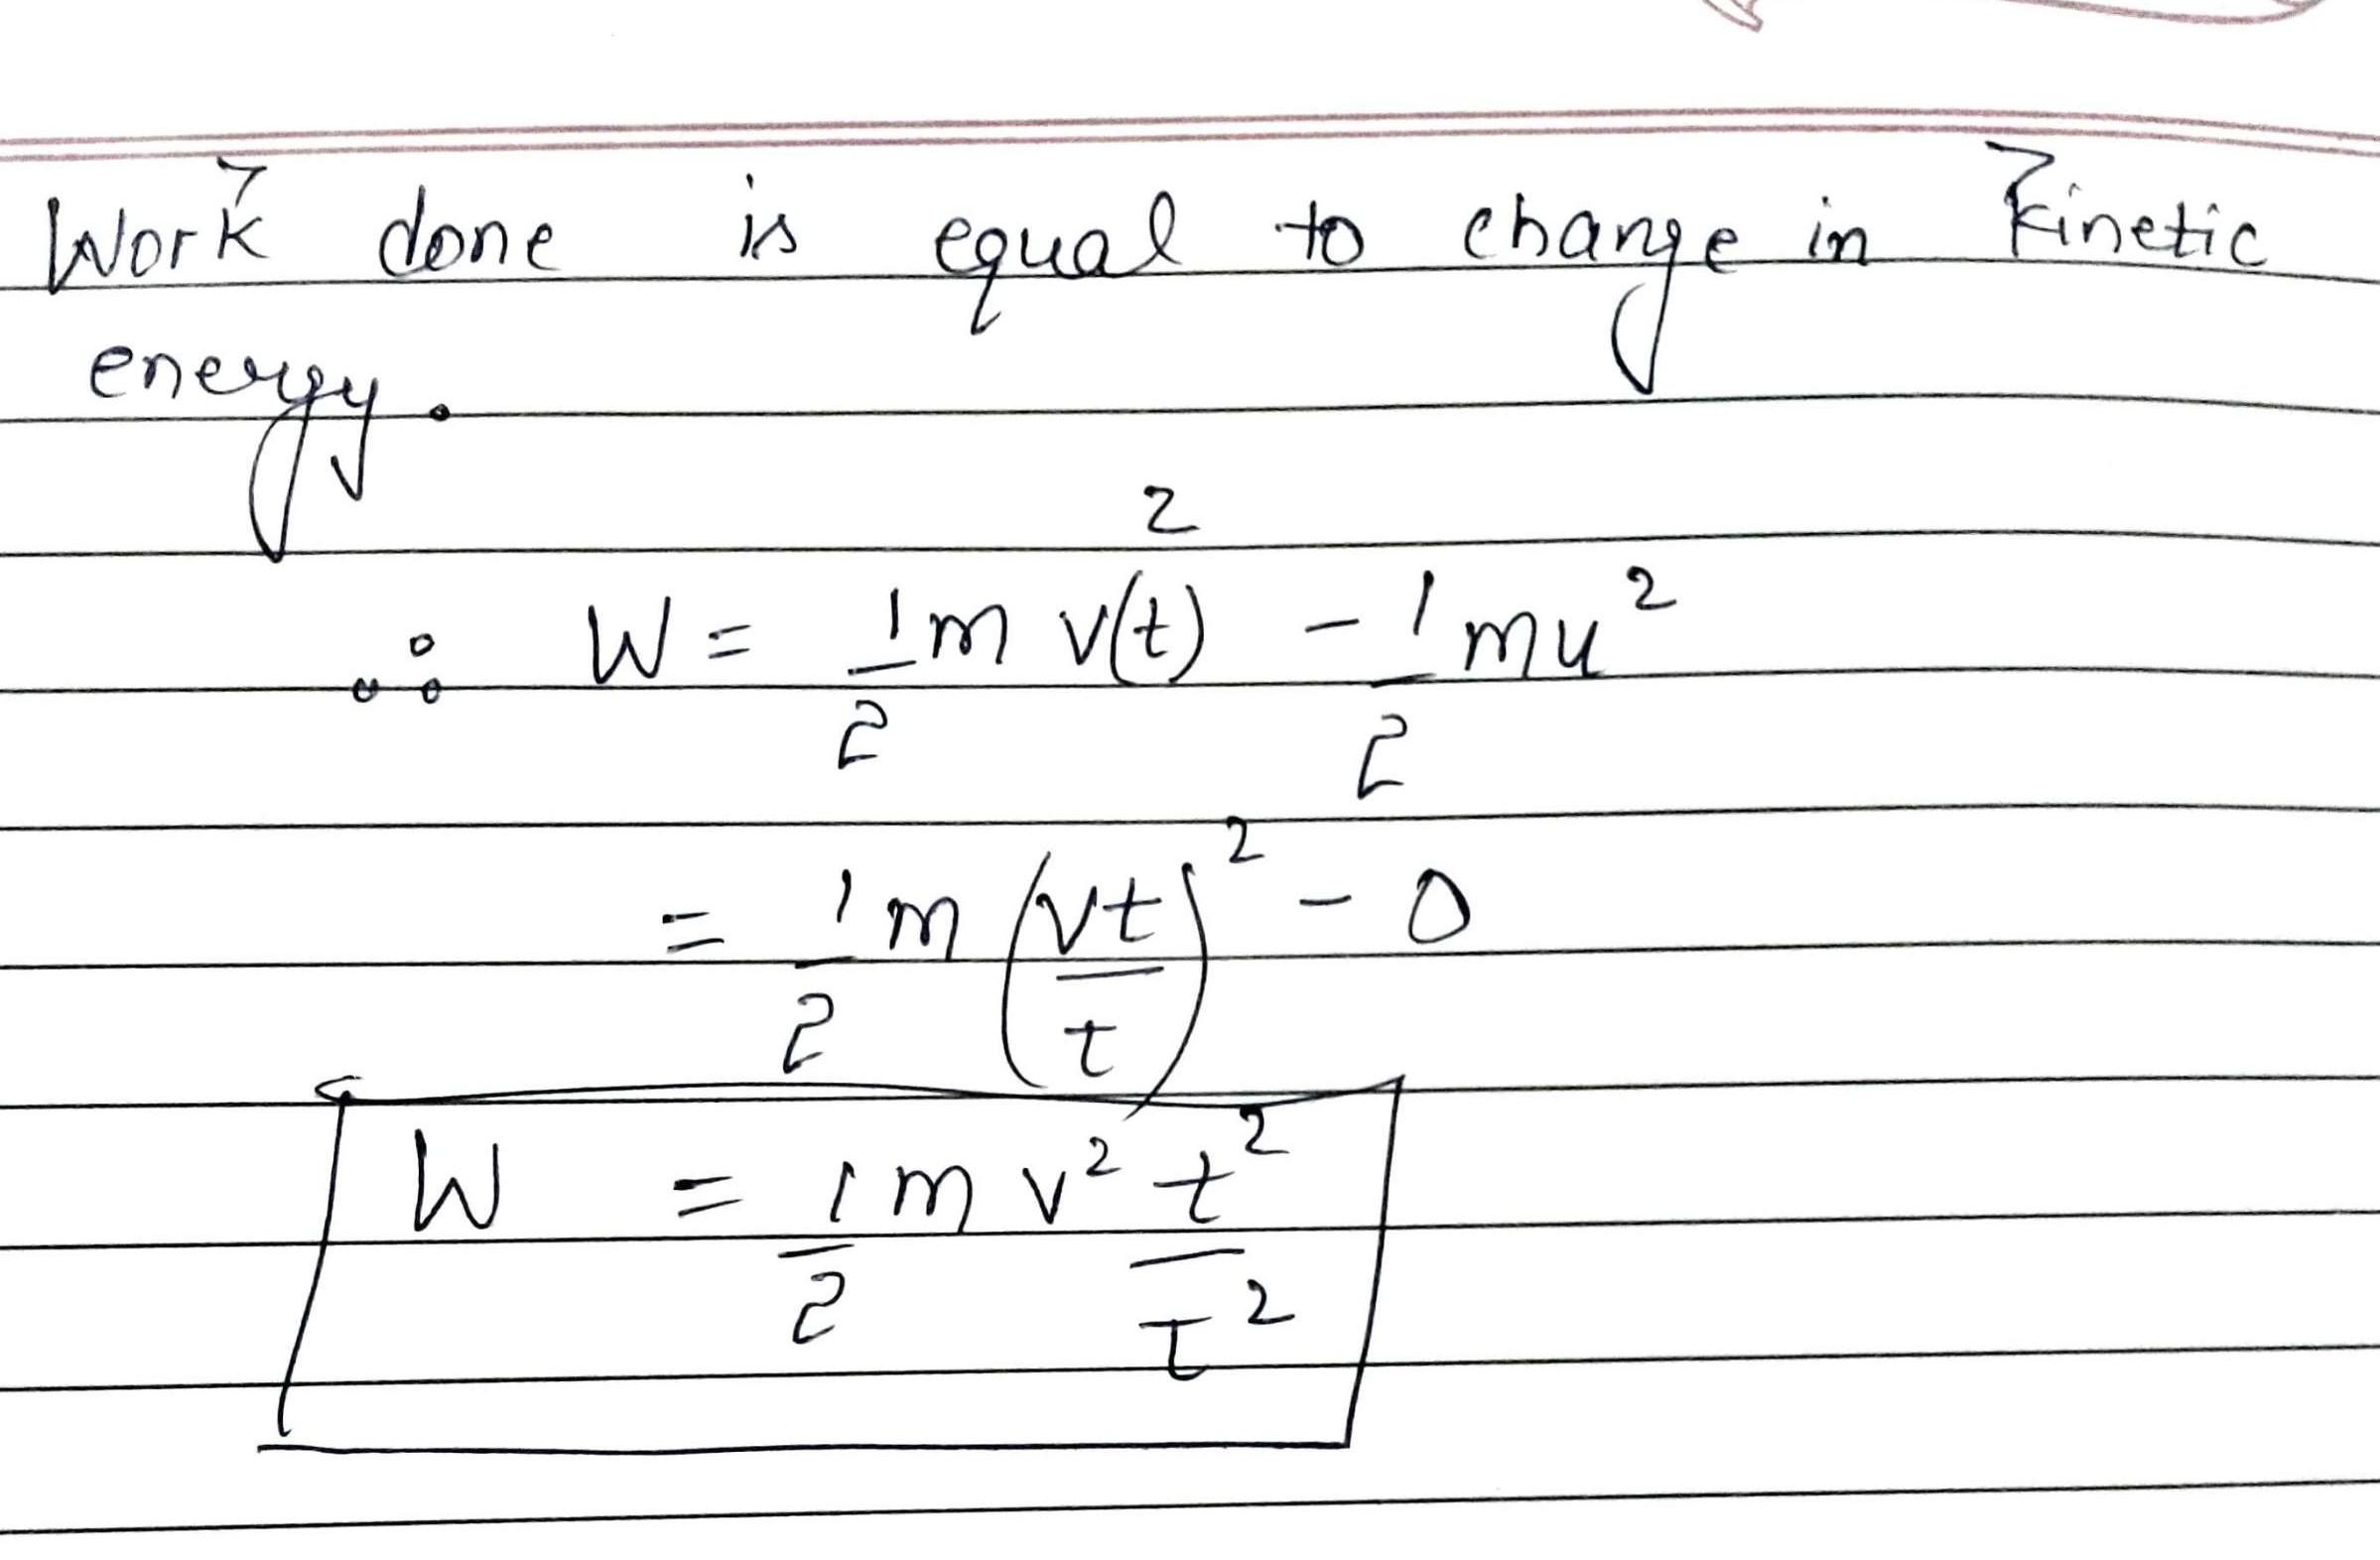 Work done is equal to change in kinetic
energy.
∴ W = 1/2 m v(t)² - 1/2 mu²
= 1/2 m (vt/τ)² - 0
W = 1/2 m v² t²/τ²